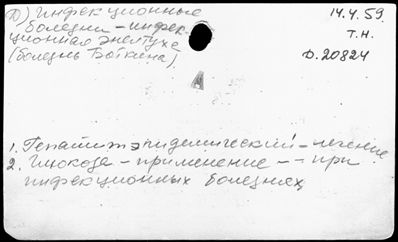 Д) инфекционные
болезни - инфек
ционная желтуха
(болезнь Боткина)
14.4.59
Т.Н.
Д.20824
А
1. Гепатит эпидемический - лечение
2. Глюкоза - применение - - при
инфекционных болезнях